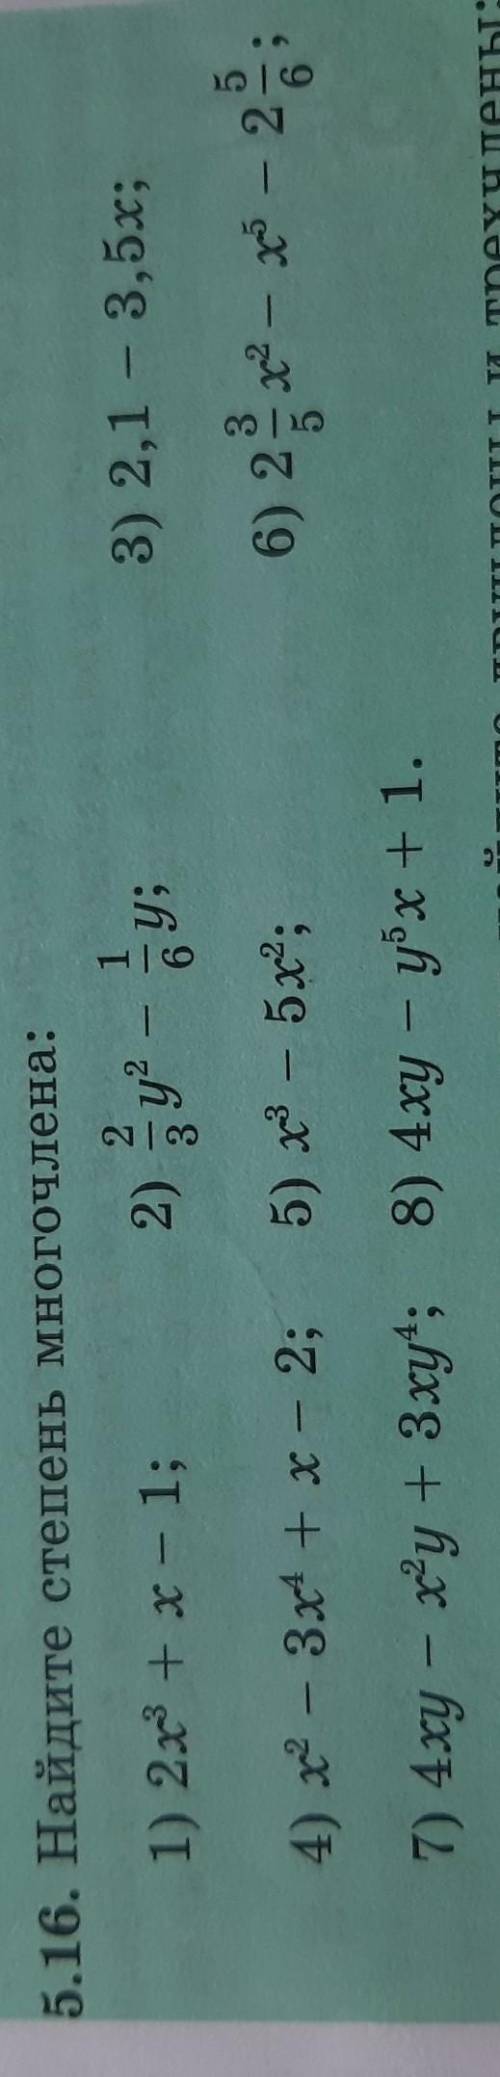 5.16. Найдите степень многочлена:
1) 2x³ + x − 1; 2) 2/3 y² − 1/6 y; 3) 2,1 − 3,5x;
4) x² − 3x⁴ + x − 2; 5) x³ − 5x²; 6) 2 3/5 x² − x⁵ − 2 5/6;
7) 4xy − x²y + 3xy⁴; 8) 4xy − y⁵x + 1.
и трехчлены: